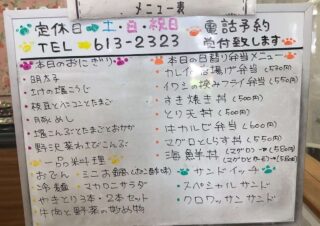 メニュー表
定休日→土・日・祝日
TEL 613-2323
電話予約
受付致します
本日のおにぎり
明太子
枝豆とベーコンとたまご
鶏めし
塩こんぶとたまごとおかか
野沢菜わさびこんぶ
一品料理
おでん
冷麺 マカロニサラダ
やきとり3本・2本セット
牛肉と野菜の炒め物
本日の日替り弁当メニュー
カレイ唐揚げ弁当
イワシの挟みフライ弁当 (550円)
すき焼き丼 (500円)
とり天丼 (500円)
ホホルモン弁当 (600円)
マグロとしらす丼 (550円)
海鮮丼
サンドイッチ
スペシャルサンド
クロワッサンサンド